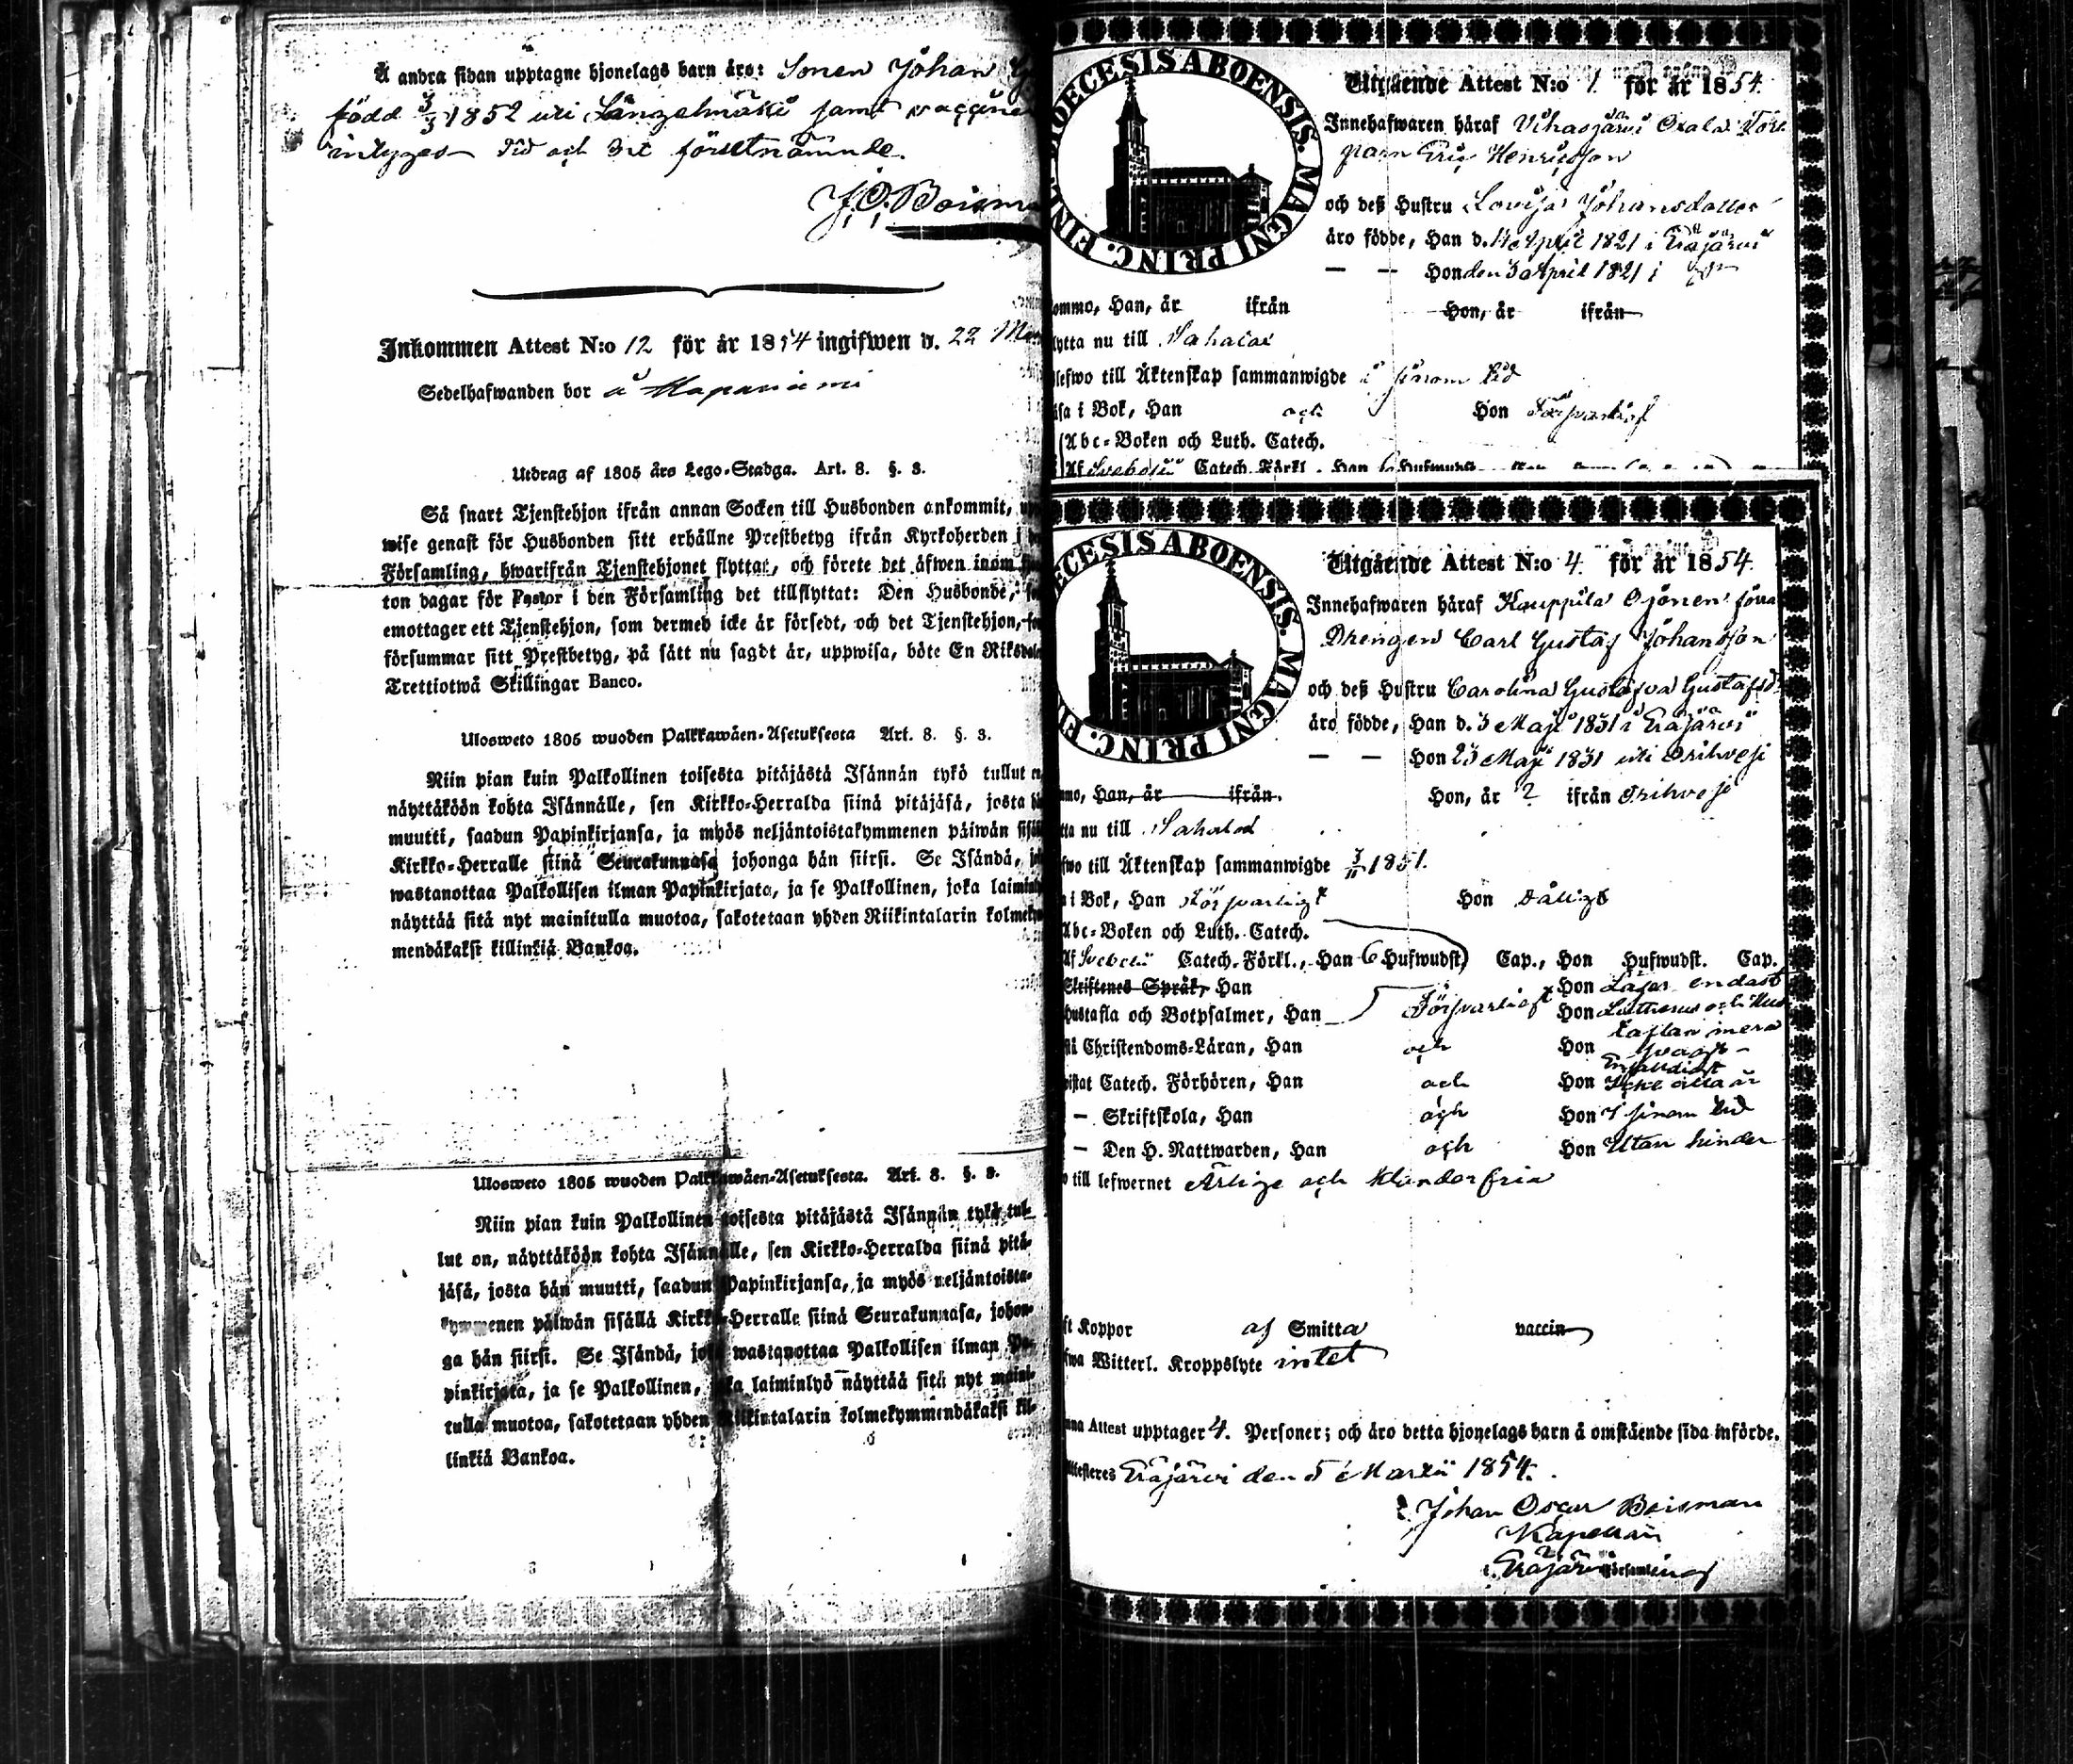 Å andra sidan upptagne hjonelags barn äro: Sonen Johan
född 3/3 1852 uti Längelmäki samt vaccine
intygas Tid och Ort förutnämnde.
J. O. Boisma
Inkommen Attest N:o 12 för år 1854 ingifwen d. 22
Sedelhafwanden bor å
Utdrag af 1805 års Lego-Stadga. Art. 8. §. 3.
Så snart Tjenstehjon ifrån annan Socken till Husbonden ankommit,
wise genast för Husbonden sitt erhållne Prestbetyg ifrån Kyrkoherden i
Församling, hwarifrån Tjenstehjonet flyttat, och förete det äfwen inom
ton dagar för Pastor i den Församling det tillflyttat: Den Husbonde,
emottager ett Tjenstehjon, som dermed icke är försedt, och det Tjenstehjon,
försummar sitt Prestbetyg, på sätt nu sagdt är, uppwisa, böte En Riksdaler
Trettiotwå Skillingar Banco.
Ulosweto 1805 wuoden Palkkawäen-Asetuksesta Art. 8. §. 3.
Niin pian kuin Palkollinen toisesta pitäjästä Isännän tykö tullut
näyttäköön kohta Isännälle, sen Kirkko-Herralda siinä pitäjäsä, josta
muutti, saadun Papinkirjansa, ja myös neljäntoistakymmenen päiwän sisäl
Kirkko-Herralle siinä Seurakunnasa johonga hän siirsi. Se Isändä,
wastanottaa Palkollisen ilman Papinkirjata, ja se Palkollinen, joka laiminly
näyttää sitä nyt mainitulla muotoa, sakotetaan yhden Riikintalarin kolmeky
mendäkaksi killinkiä Bankoa.
Ulosweto 1805 wuoden Palkkawäen-Asetuksesta. Art. 8. §. 3.
Niin pian kuin Palkollinen toisesta pitäjästä Isännän tykö tul-
lut on, näyttäköön kohta Isännälle, sen Kirkko-Herralda siinä pitä-
jäsä, josta hän muutti, saadun Papinkirjansa, ja myös neljäntoista-
kymmenen päiwän sisällä Kirkko-Herralle siinä Seurakunnasa, johon-
ga hän siirsi. Se Isändä, joka wastanottaa Palkollisen ilman Pa-
pinkirjata, ja se Palkollinen, joka laiminlyö näyttää sitä nyt maini-
tulla muotoa, sakotetaan yhden Riikintalarin kolmekymmendäkaksi kil-
linkiä Bankoa.
DIOECESIS ABOENSIS. MAGNI PRINC. FINL
Utgående Attest N:o 1 för år 1854.
Innehafwaren häraf Vihasjärvi
Eric Henricsson
och deß Hustru Lovisa Johansdotter
äro födde, Han d. 14 April 1821 i Eräjärvi
— — Hon den 3 April 1821 i
ommo, Han, år ifrån Hon, år ifrån
lytta nu till Sahalax
lefwo till Äktenskap sammanwigde i sinom tid
äsa i Bok, Han och Hon Försvarligt
Abc-Boken och Luth. Catech.
Af Svebelii Catech. Förkl., Han 6 Hufwudst.
ECESIS ABOENSIS. MAGNI PRINC. FIN
Utgående Attest N:o 4. för år 1854.
Innehafwaren häraf Kauppila Ojonen förra
Drengen Carl Gustaf Johansson
och deß Hustru Carolina Gustafva Gustafsd:r
äro födde, Han d. 3 Maji 1831 i Eräjärvi
— — Hon 23 Maji 1831 uti Orihvesi
mmo, Han, år ifrån. Hon, år ? ifrån Orihvesi
tta nu till Sahalax
fwo till Äktenskap sammanwigde 7/11 1851.
a i Bok, Han Försvarligt Hon dåligt
Abc-Boken och Luth. Catech.
Af Svebelii Catech. Förkl., Han 6 Hufwudst. Cap., Hon Hufwudst. Cap.
Skriftenes Språk, Han Hon Läser endast
Hustafla och Botpsalmer, Han Försvarligt Hon Lutherus och Hus
taflan mera
stå Christendoms-Läran, Han och Hon svagt
Enfaldigt
wistat Catech. Förhören, Han och Hon Icke alla år
— Skriftskola, Han och Hon I sinom tid
— Den H. Nattwarden, Han och Hon Utan hinder
o till lefwernet Ärlige och klanderfria
ft Koppor af Smitta vaccin
fwa Witterl. Kroppslyte intet
nna Attest upptager 4. Personer; och äro detta hjonelags barn å omstående sida införde.
Attesteres Eräjärvi den 5 Martii 1854.
Johan Oscar Boisman
Kapellan
i Eräjärvi församling